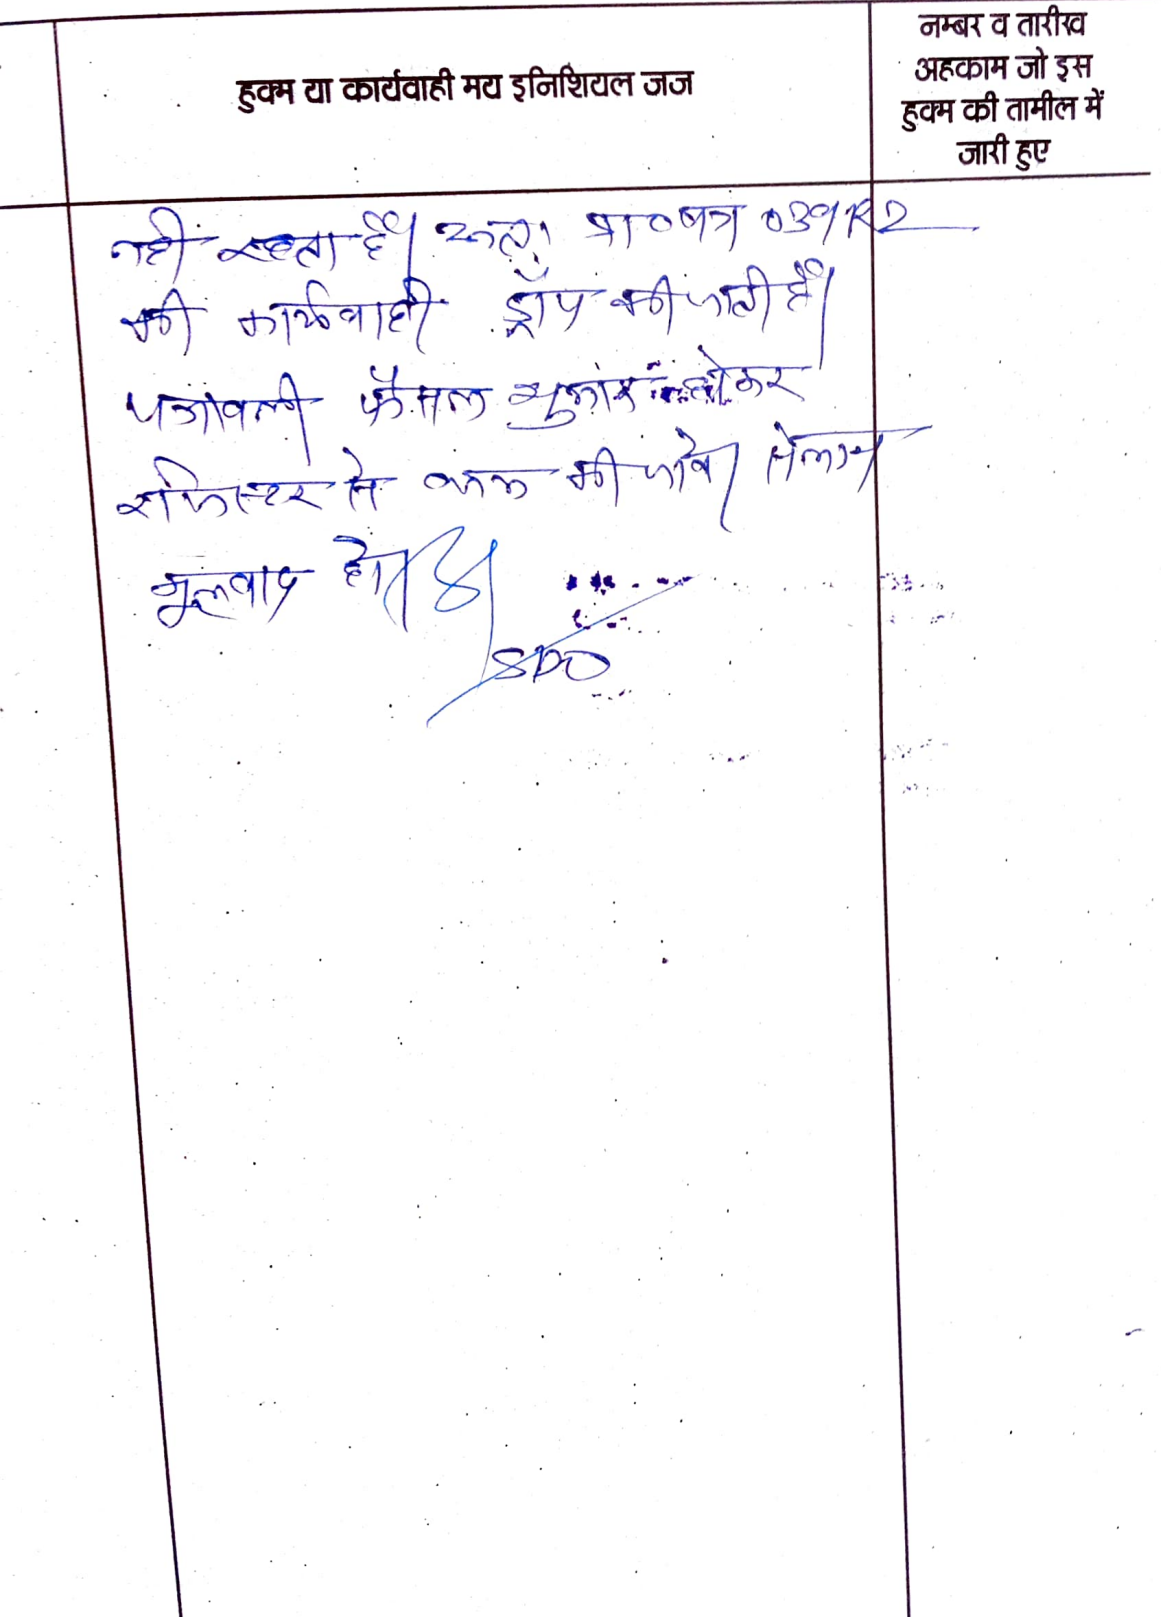 हुक्म या कार्यवाही मय इनिशियल जज
नम्बर व तारीख
अहकाम जो इस
हुक्म की तामील में
जारी हुए
नहीं रहता है। अतः प्रा०पत्र O39R2
की कार्यवाही ड्रॉप की जाती है।
पत्रावली फैसल शुमार होकर
रजिस्टर से कम की जावे। संलग्न
मूलवाद हो।
SDO